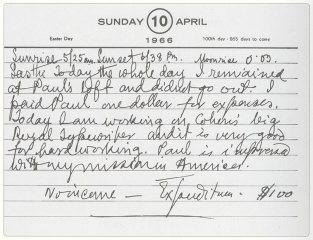 SUNDAY 10 APRIL
Easter Day 1966 100th day - 265 days to come
Sunrise 5/25 am. Sunset 6/38 Pm. Moonrise 0:03.
To day the whole day I remained
at Paul's Loft and did not go out. I
paid Paul one dollar for expenses.
Today I am working on Cohen's big
Royal and it is very good
for hard working. Paul is impressed
with my mission in America.
No income — Expenditure. $1.00